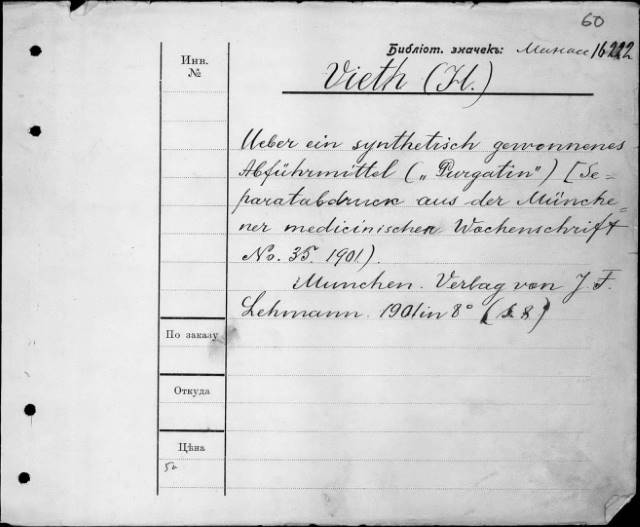 60
Библіот. значекъ: Манасс 16222
Инв.
№
Vieth (H.)
Ueber ein synthetisch gewonnenes
Abführmittel („Purgatin") [Se=
paratabdruck aus der Münche=
ner medicinischen Wochenschrift
No. 35. 1901).
München. Verlag von J. F.
Lehmann. 1901 in 8° (S. 8)
По заказу
Откуда
Цѣна